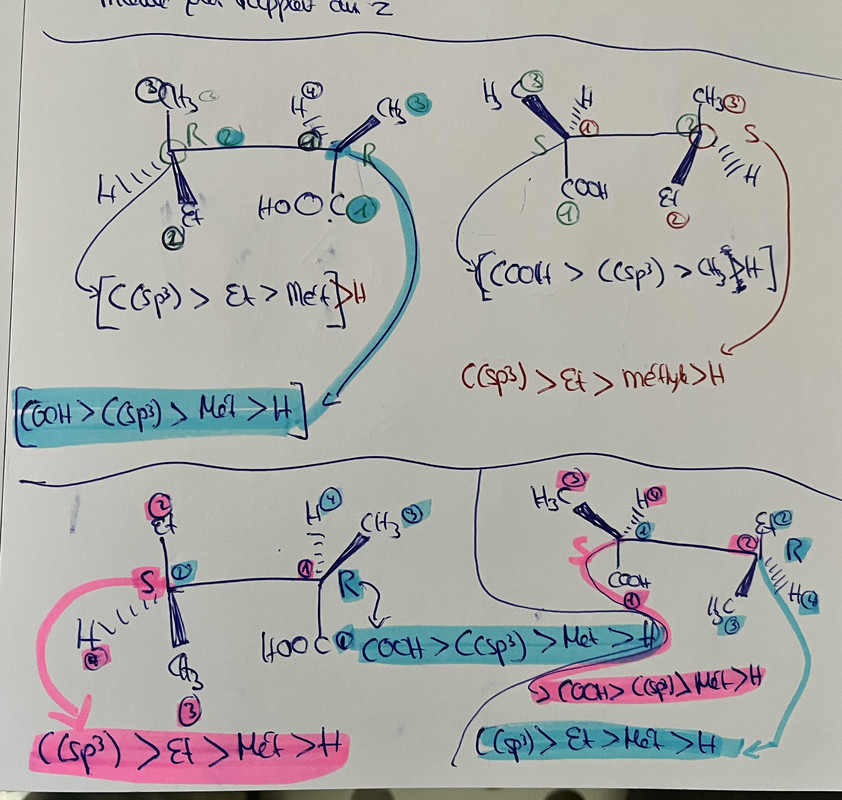 par rapport au 2
③ CH₃ ③
R ②
H ④
①
CH₃ ③
R
H
Et
②
HOOC ①
[C(sp³) > Et > Mét] > H
[COOH > C(sp³) > Mét > H]
H₃C ③
H
①
S
COOH
①
CH₃ ③
②
S
H
Et
②
[COOH > C(sp³) > CH₃ > H]
C(sp³) > Et > méthyle > H
②
Et
S ②
H
④
CH₃
③
H ④
CH₃ ③
①
R
HOOC ①
COOH > C(sp³) > Mét > H
C(sp³) > Et > Mét > H
③
H₃C
H ④
①
S
COOH
①
Et ②
②
R
H ④
H₃C
③
COOH > C(sp³) > Mét > H
C(sp³) > Et > Mét > H